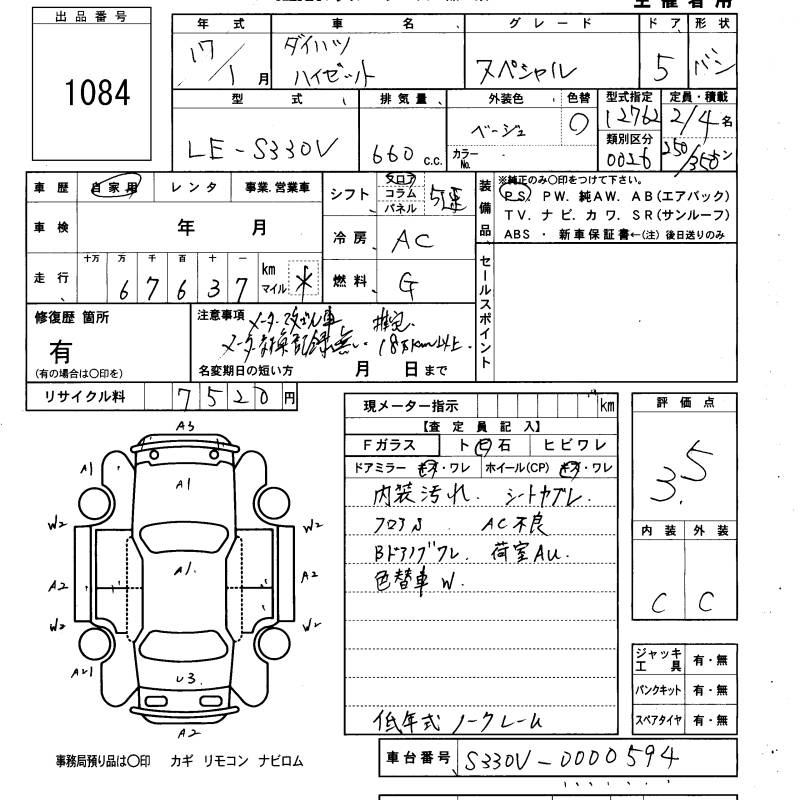 出品番号
1084
年式 車名 グレード ドア 形状
17/1月 ダイハツ ハイゼット スペシャル 5 バン
型式 排気量 外装色 色替 型式指定 定員・積載
LE-S330V 660 c.c. ベージュ 〇 12762 2/4名
カラーNo. 類別区分
0026 250/350キン
車歴 自家用 レンタ 事業.営業車
シフト フロア コラム パネル 5速
装備品
※純正のみ〇印をつけて下さい。
PS. PW. 純AW. AB(エアバック)
TV. ナビ. カワ. SR(サンルーフ)
ABS ・ 新車保証書←(注) 後日送りのみ
車検 年 月
冷房 AC
走行 十万 万 千 百 十 一 km マイル
6 7 6 3 7 *
燃料 G
セールスポイント
修復歴 箇所
有
(有の場合は〇印を)
注意事項 メーター改ざん車 推定
メーター交換記録無し. 18万km以上.
名変期日の短い方 月 日まで
リサイクル料 7 5 2 0 円
現メーター指示 km
【査定員記入】
Fガラス ト ビ 石 ヒビワレ
ドアミラー キズ・ワレ ホイール(CP) キズ・ワレ
内装汚れ. シートヤブレ.
フロアS AC不良
荷室AU.
色替車 W.
低年式 ノークレーム
評価点
3.5
内装 外装
C C
ジャッキ工具 有・無
パンクキット 有・無
スペアタイヤ 有・無
A3
A1 A1 A1
W2 W2
A2 A1. A2
W2 W2
AU1 U3. A1
A2
事務局預り品は〇印 カギ リモコン ナビロム
車台番号 S330V-0000594